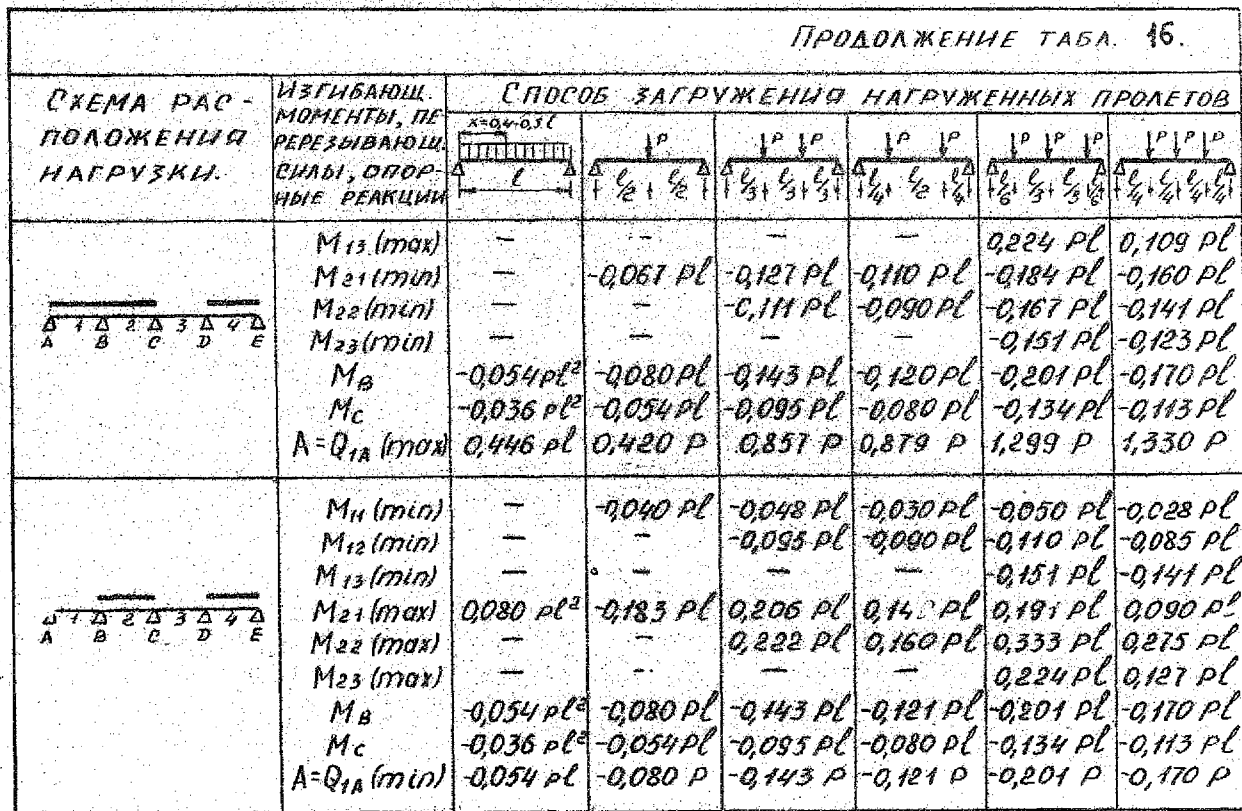 ПРОДОЛЖЕНИЕ ТАБЛ. 16.
СХЕМА РАС-
ПОЛОЖЕНИЯ
НАГРУЗКИ.
ИЗГИБАЮЩ.
МОМЕНТЫ, ПЕ
РЕРЕЗЫВАЮЩ.
СИЛЫ, ОПОР-
НЫЕ РЕАКЦИИ
СПОСОБ ЗАГРУЖЕНИЯ НАГРУЖЕННЫХ ПРОЛЕТОВ
x=0,4-0,5 l
l
P
l/2 l/2
P P
l/3 l/3 l/3
P P
l/4 l/2 l/4
P P P
l/6 l/3 l/3 l/6
P P P
l/4 l/4 l/4 l/4
1 2 3 4
A B C D E
M13 (max) — — — — 0,224 Pl 0,109 Pl
M21 (min) — -0,067 Pl -0,127 Pl -0,110 Pl -0,184 Pl -0,160 Pl
M22 (min) — — -0,111 Pl -0,090 Pl -0,167 Pl -0,141 Pl
M23 (min) — — — — -0,151 Pl -0,123 Pl
MB -0,054 pl² -0,080 Pl -0,143 Pl -0,120 Pl -0,201 Pl -0,170 Pl
MC -0,036 pl² -0,054 Pl -0,095 Pl -0,080 Pl -0,134 Pl -0,113 Pl
A=Q1A (max) 0,446 pl 0,420 P 0,857 P 0,879 P 1,299 P 1,330 P
1 2 3 4
A B C D E
M11 (min) — -0,040 Pl -0,048 Pl -0,030 Pl -0,050 Pl -0,028 Pl
M12 (min) — — -0,095 Pl -0,090 Pl -0,110 Pl -0,085 Pl
M13 (min) — — — — -0,151 Pl -0,141 Pl
M21 (max) 0,080 pl² -0,183 Pl 0,206 Pl Pl 0,191 Pl 0,090 Pl
M22 (max) — — 0,222 Pl 0,160 Pl 0,333 Pl 0,275 Pl
M23 (max) — — — — 0,224 Pl 0,127 Pl
MB -0,054 pl² -0,080 Pl -0,143 Pl -0,121 Pl -0,201 Pl -0,170 Pl
MC -0,036 pl² -0,054 Pl -0,095 Pl -0,080 Pl -0,134 Pl -0,113 Pl
A=Q1A (min) -0,054 pl -0,080 P -0,143 P -0,121 P -0,201 P -0,170 P